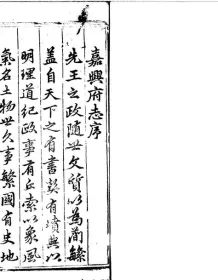 嘉興府志序
先王之政隨世文質以為簡繁
蓋自天下之有書契有墳典以
明理道紀政事有丘索以象風
氣名土物世久事繁國有史地